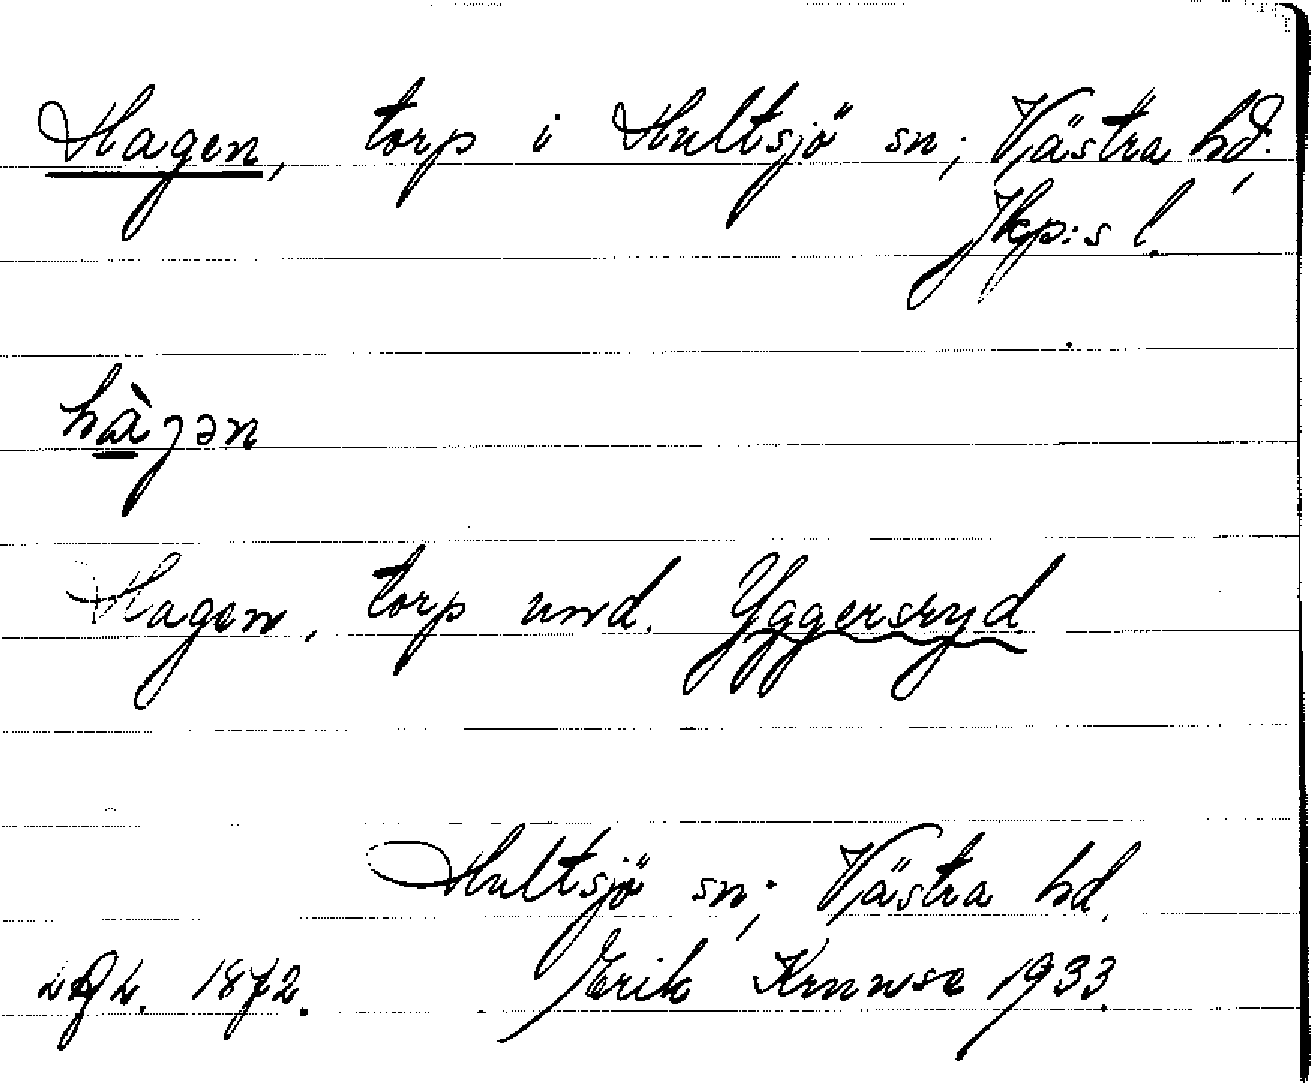 Hagen, torp i Hultsjö sn; Västra hd.
Jkp:s l.
hàgən
Hagen, torp und. Yggersryd
Hultsjö sn; Västra hd.
1872. Erik Kruuse 1933.